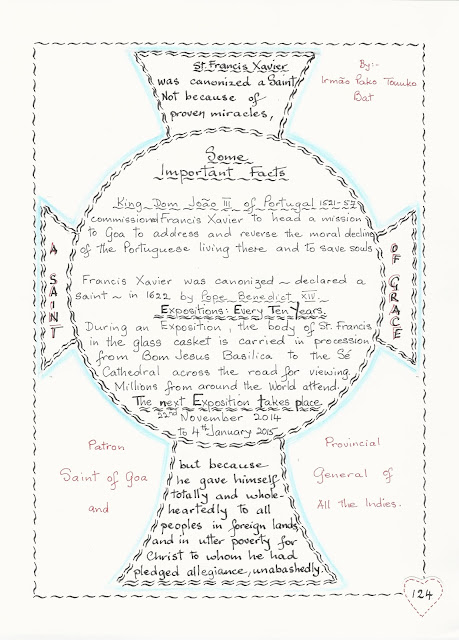 St. Francis Xavier
was canonized a Saint,
Not because of
proven miracles,
By:-
Irmão Pako Tonuko
Bat
Some
Important Facts
King Dom João III of Portugal 1521-57
commissioned Francis Xavier to head a mission
to Goa to address and reverse the moral decline
of the Portuguese living there and to save souls
Francis Xavier was canonized ~ declared a
saint ~ in 1622 by Pope Benedict XIV.
Expositions: Every Ten Years.
During an Exposition, the body of St. Francis
in the glass casket is carried in procession
from Bom Jesus Basilica to the Sé
Cathedral across the road for viewing.
Millions from around the World attend.
The next Exposition takes place
22nd November 2014
to 4th January 2015
A SAINT
OF GRACE
Patron
Saint of Goa
and
Provincial
General of
All the Indies.
but because
he gave himself
totally and whole-
heartedly to all
peoples in foreign lands
and in utter poverty for
Christ to whom he had
pledged allegiance, unabashedly.
124